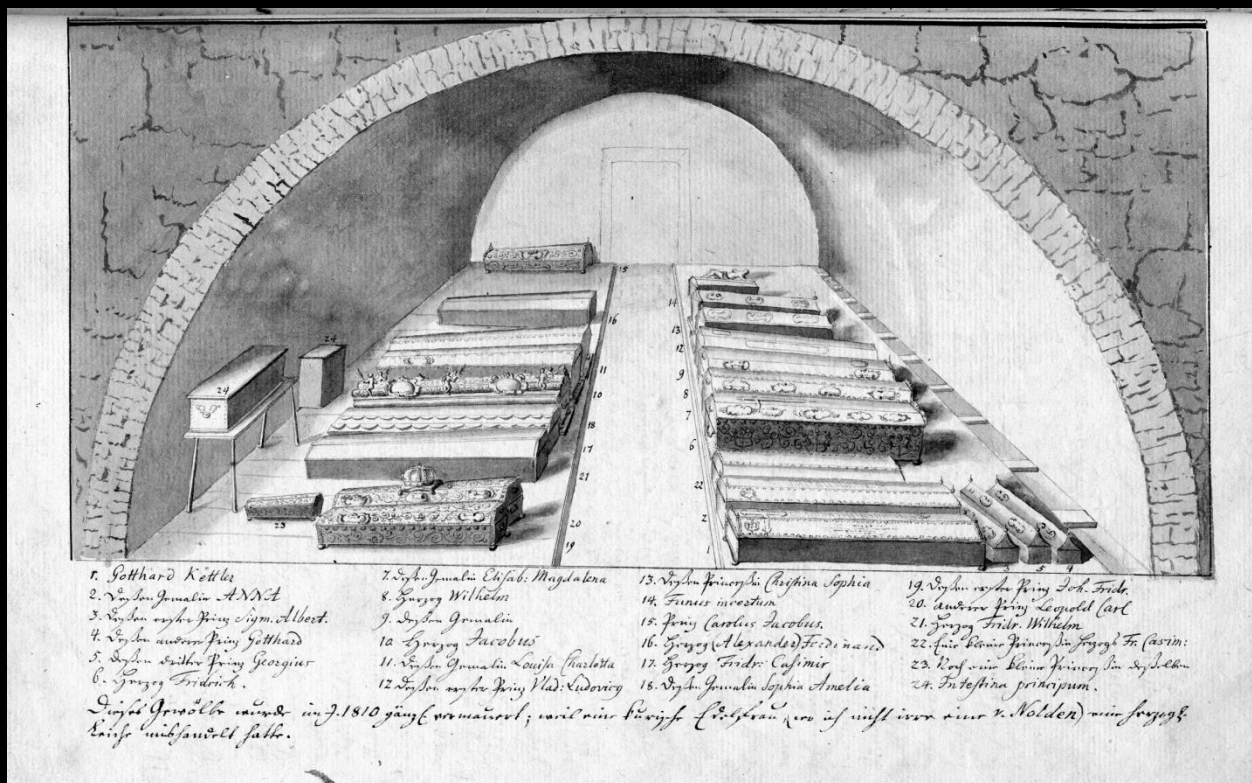 1. Gotthard Kettler
2. Deßen Gemalin ANNA
3. Deßen erster Prinz Sigm. Albert.
4. Deßen andere Prinz Gotthard
5. Deßen dritter Prinz Georgius
6. Herzog Fridrich.
7. Deßen Gemalin Elisab: Magdalena
8. Herzog Wilhelm
9. Deßen Gemalin
10 Herzog Jacobus
11. Deßen Gemalin Louisa Charlotta
12 Deßen erster Prinz Vlad: Ludovicq
13. Deßen Princeßin Christina Sophia
14. Funus incertum
15. Prinz Carolus Jacobus.
16. Herzog (Alexander) Ferdinand
17. Herzog Fridr: Casimir
18. Deßen Gemalin Sophia Amelia
19. Deßen erster Prinz Joh. Fridr.
20. anderer Prinz Leopold Carl
21. Herzog Fridr. Wilhelm
22. Eine kleine Princeßin Herzogs Fr. Casim:
23. Noch eine kleine Princeßin deßelben
24. Intestina principum.
Dieses Gewölbe wurde im J. 1810 gänzl vermauert; weil eine kurische Edelfrau (wo ich nicht irre eine v. Nolden) eine herzogl.
Leiche mishandelt hatte.
15
16
11
10
18
17
21
20
19
24
24
23
14
13
12
9
8
7
6
22
2
1
3
5
4